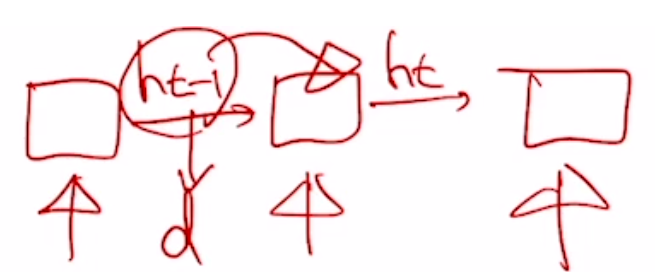 ht-1
ht
d